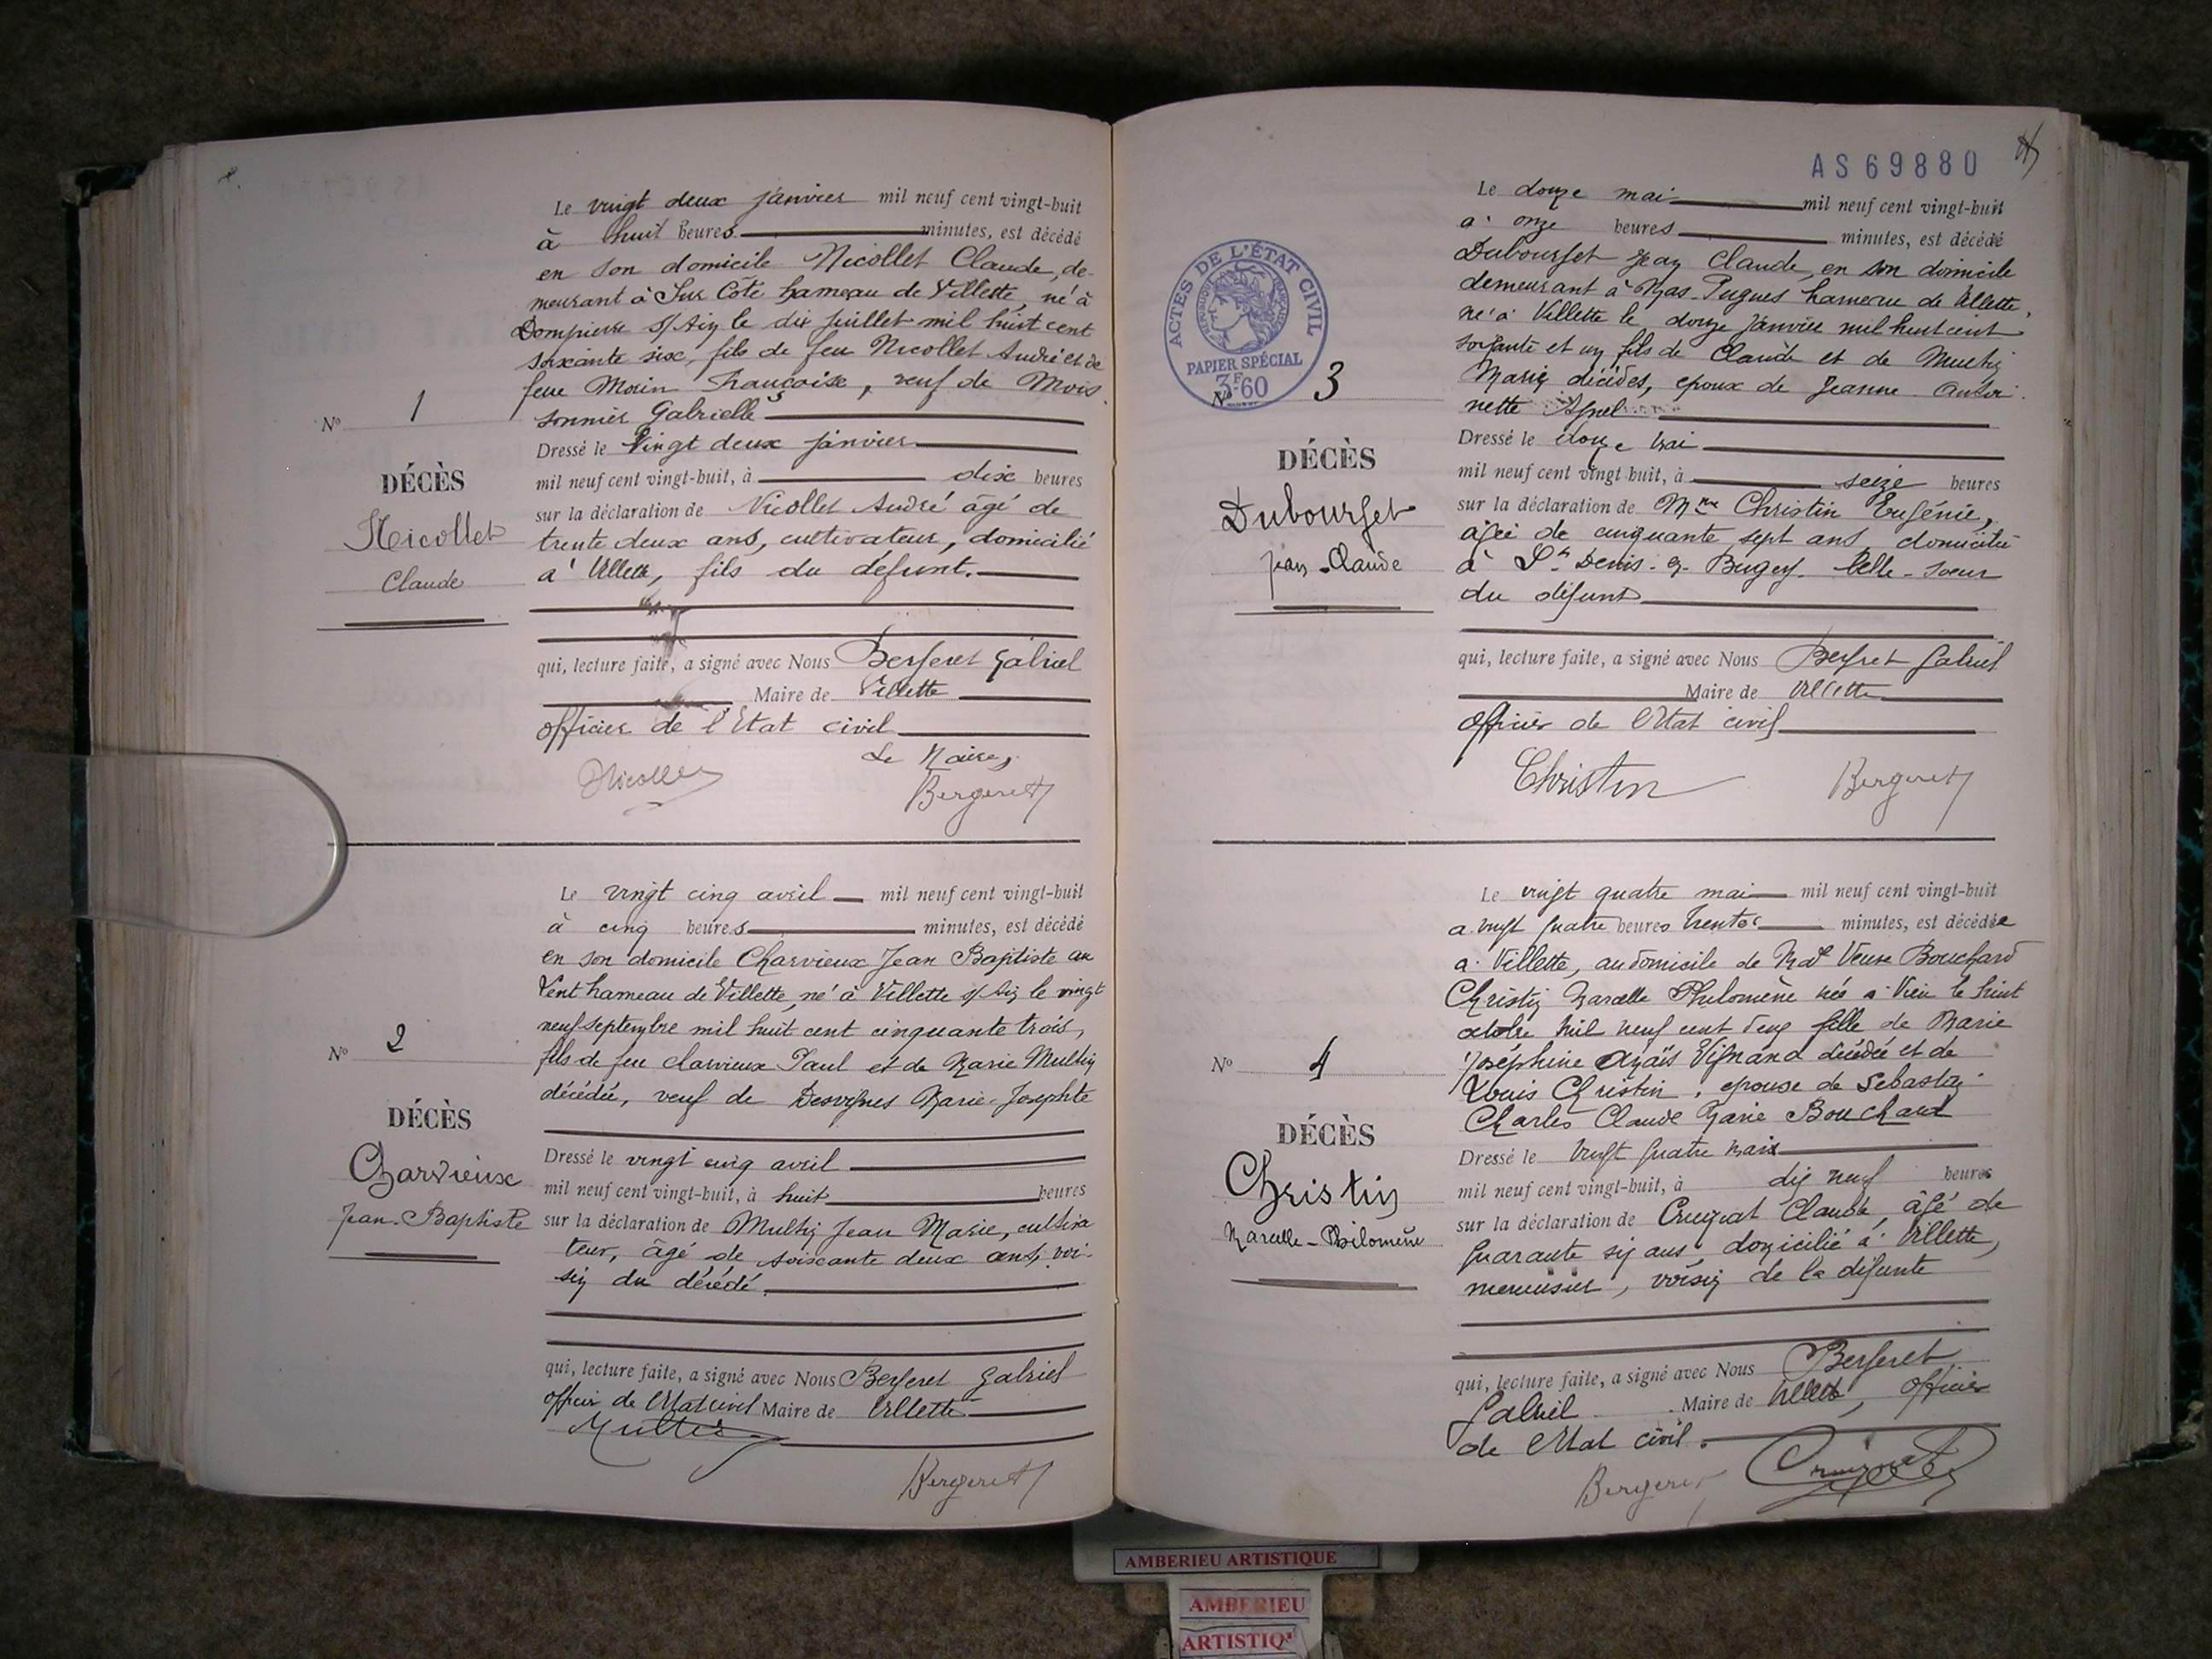 Le vingt deux janvier mil neuf cent vingt-huit
à huit heures minutes, est décédé
en son domicile Nicollet Claude, de-
meurant à Sur Côte hameau de Villette, né à
Dompierre s/Ain le dix juillet mil huit cent
soixante six, fils de feu Nicollet André et de
feue Morin Françoise, veuf de Mois
sonnier Gabrielle
Nº 1
DÉCÈS
Nicollet
Claude
Dressé le vingt deux janvier
mil neuf cent vingt-huit, à dix heures
sur la déclaration de Nicollet André âgé de
trente deux ans, cultivateur, domicilié
a' Villette, fils du défunt.
qui, lecture faite, a signé avec Nous Bergeret Gabriel
Maire de Villette
officier de l'Etat civil
Le Maire,
Nicollet Bergeret
Le vingt cinq avril mil neuf cent vingt-huit
à cinq heures minutes, est décédé
en son domicile Charvieux Jean Baptiste au
Vent hameau de Villette, né à Villette s/Ain le vingt
neuf septembre mil huit cent cinquante trois,
fils de feu Charvieux Paul et de Marie Multin
décédée, veuf de Desvignes Marie-Josephte
Nº 2
DÉCÈS
Charvieux
Jean-Baptiste
Dressé le vingt cinq avril
mil neuf cent vingt-huit, à huit heures
sur la déclaration de Multin Jean Marie, cultiva
teur, âgé de soixante deux ans, voi-
sin du décédé.
qui, lecture faite, a signé avec Nous Bergeret Gabriel
officier de l'Etat civil Maire de Villette
Multin
Bergeret
AS 69880
ACTES DE L'ÉTAT CIVIL
RÉPUBLIQUE FRANÇAISE
PAPIER SPÉCIAL
3F.60
Le douze mai mil neuf cent vingt-huit
a' onze heures minutes, est décédé
Dubourget Jean Claude, en son domicile
demeurant à Mas-Pugues hameau de Villette,
né à Villette le douze janvier mil huit cent
soixante et un fils de Claude et de Multin
Marie décédés, epoux de Jeanne Antoi
nette
Nº 3
DÉCÈS
Dubourget
Jean-Claude
Dressé le douze mai
mil neuf cent vingt-huit, à seize heures
sur la déclaration de Mme Christin Eugénie,
agée de cinquante sept ans domiciliée
à St Denis-en-Bugey, belle-soeur
du défunt
qui, lecture faite, a signé avec Nous Bergeret Gabriel
Maire de Villette
officier de l'Etat civil
Christin Bergeret
Le vingt quatre mai mil neuf cent vingt-huit
a vingt quatre heures trente minutes, est décédée
a' Villette, au domicile de Mad Veuve Bouchard
Christin Marcelle Philomène née a' Vieu le huit
octobre mil neuf cent deux fille de Marie
Joséphine Vignand décédée et de
Louis Christin, epouse de Sebastien
Charles Claude Marie Bouchard
Nº 4
DÉCÈS
Christin
Marcelle-Philomène
Dressé le vingt quatre mai
mil neuf cent vingt-huit, à dix neuf heures
sur la déclaration de Claude, âgé de
quarante six ans, domicilié a' Villette,
menuisier, voisin de la défunte
qui, lecture faite, a signé avec Nous Bergeret
Gabriel Maire de Villette, officier
de l'Etat civil.
Bergeret
AMBERIEU ARTISTIQUE
AMBERIEU
ARTISTIQ